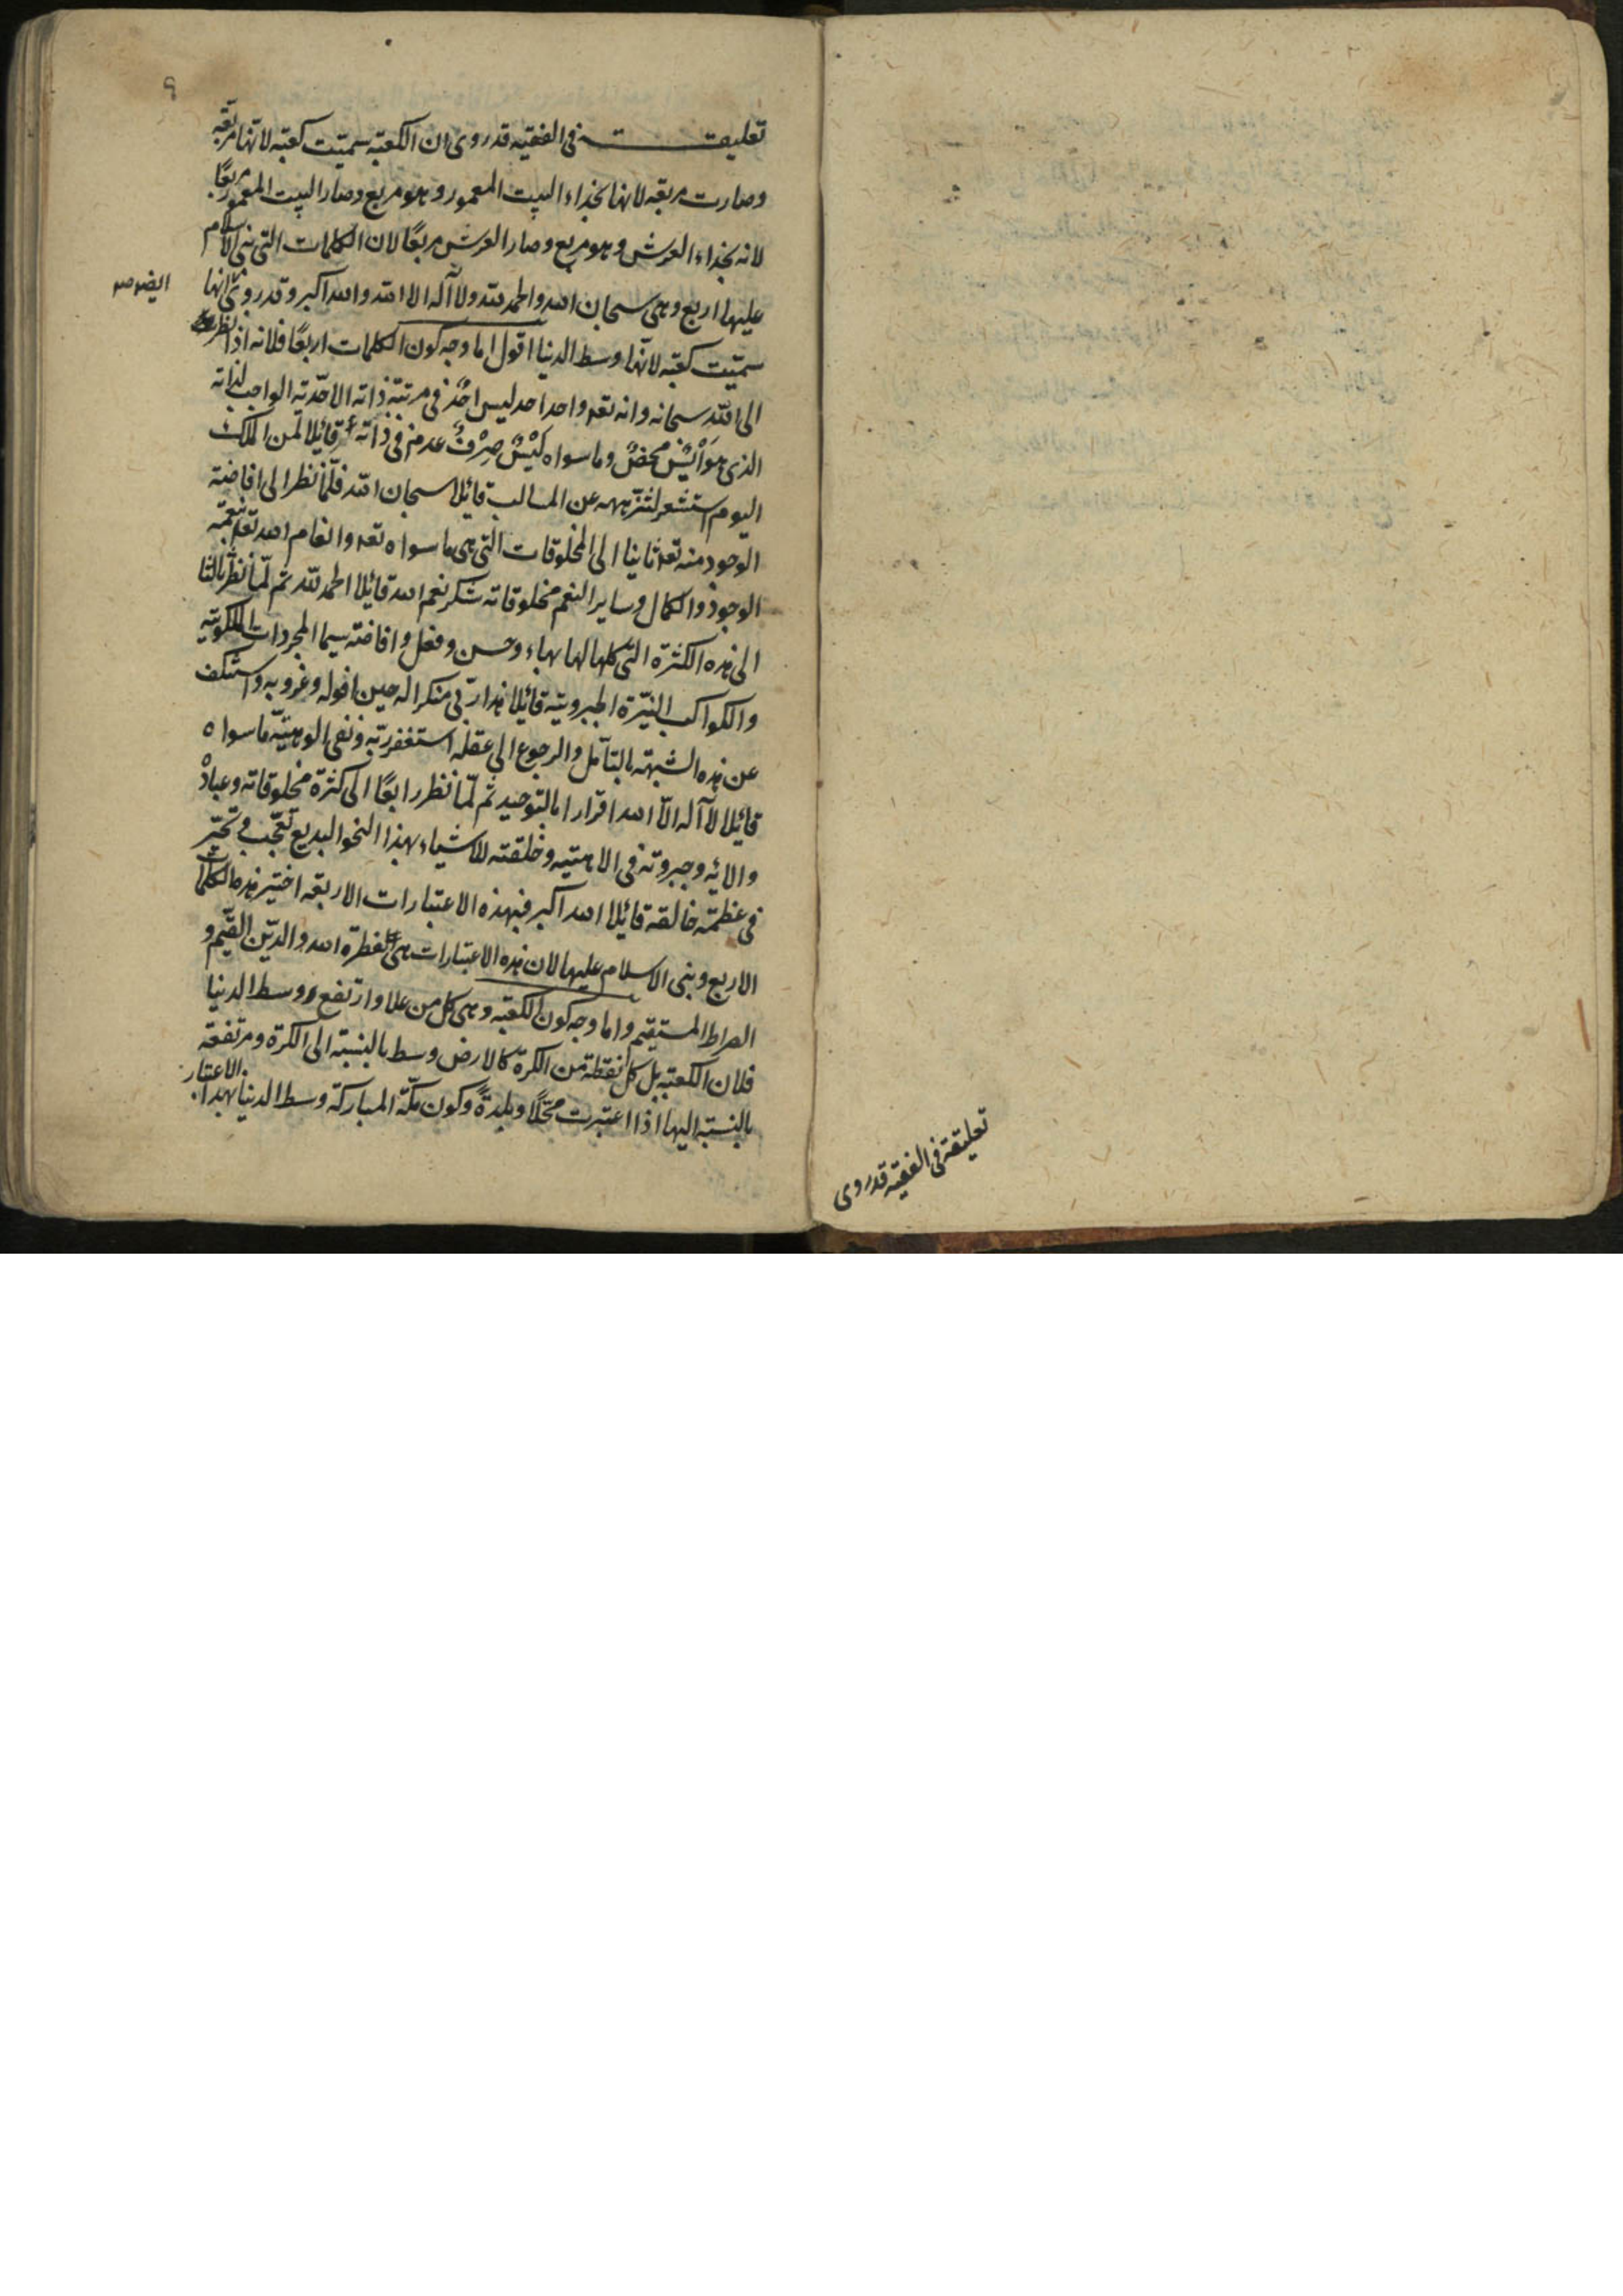 تعليقة في الفقيه قد روى ان الكعبة سميت كعبة لانها مربعة
وصارت مربعة لانها بحذاء البيت المعمور وهو مربع وصار البيت المعمور مربعًا
لانه بحذاء العرش وهو مربع وصار العرش مربعًا لان الكلمات التى بنى الاسلام
عليها اربع وهى سبحان الله والحمد لله ولا آله الا الله والله اكبر وقد روى انها
ايضا
سميت كعبة لانها وسط الدنيا اقول اما وجه كون الكلمات اربعًا فلانه اذا نظر
الى الله سبحانه وانه تعه واحد احد ليس احدٌ فى مرتبة ذاته الاحدية الواجب لذاته
الذى هو اَيْسٌ محضٌ وما سواه لَيْسٌ صِرْفٌ عدم فى ذاته قائلا لمن الملك
اليوم استشعر لتنزيهه عن المسالب قائلا سبحان الله فلمّا نظر الى افاضة
الوجود منه تعه ثانيا الى المخلوقات التى هى ما سواه تعه وانعام الله تعه نعمة
الوجود والكمال وساير النعم مخلوقاته شكر نعم الله قائلا الحمد لله ثم لمّا نظر ثالثا
الى هذه الكثرة التى كلها لها بهاء وحسن وفعل وافاضة سيما المجردات الملكوتية
والكواكب النيّرة الجبروتية قائلا هذا ربّى منكرا له حين افوله وغروبه واستنكف
عن هذه الشبهة بالتأمل والرجوع الى عقله استغفر ربّه ونفى الوهيّة ما سواه
قائلا لا آله الّا الله اقرارا بالتوحيد ثم لمّا نظر رابعًا الى كثرة مخلوقاته وعباده
والائه وجبروته فى الاهتيه وخلقته للاشياء بهذا النحو البديع تعجّب وتحيّر
فى عظمة خالقه قائلا الله اكبر فبهذه الاعتبارات الاربعة اختير هذه الكلمات
الاربع وبنى الاسلام عليها لان هذه الاعتبارات هى الفطرة الله والدّين القيّم و
الصراط المستقيم واما وجه كون الكعبة وهى كل من علا وارتفع وسط الدنيا
فلان الكعبة بل كل نقطة من الكرة كالارض وسط بالنسبة الى الكرة ومرتفعة
بالنسبة اليها اذا اعتبرت محلًا وبلدةً وكون مكّة المباركة وسط الدنيا بهذا الاعتبار
تعليقة فى الفقيه قد روى